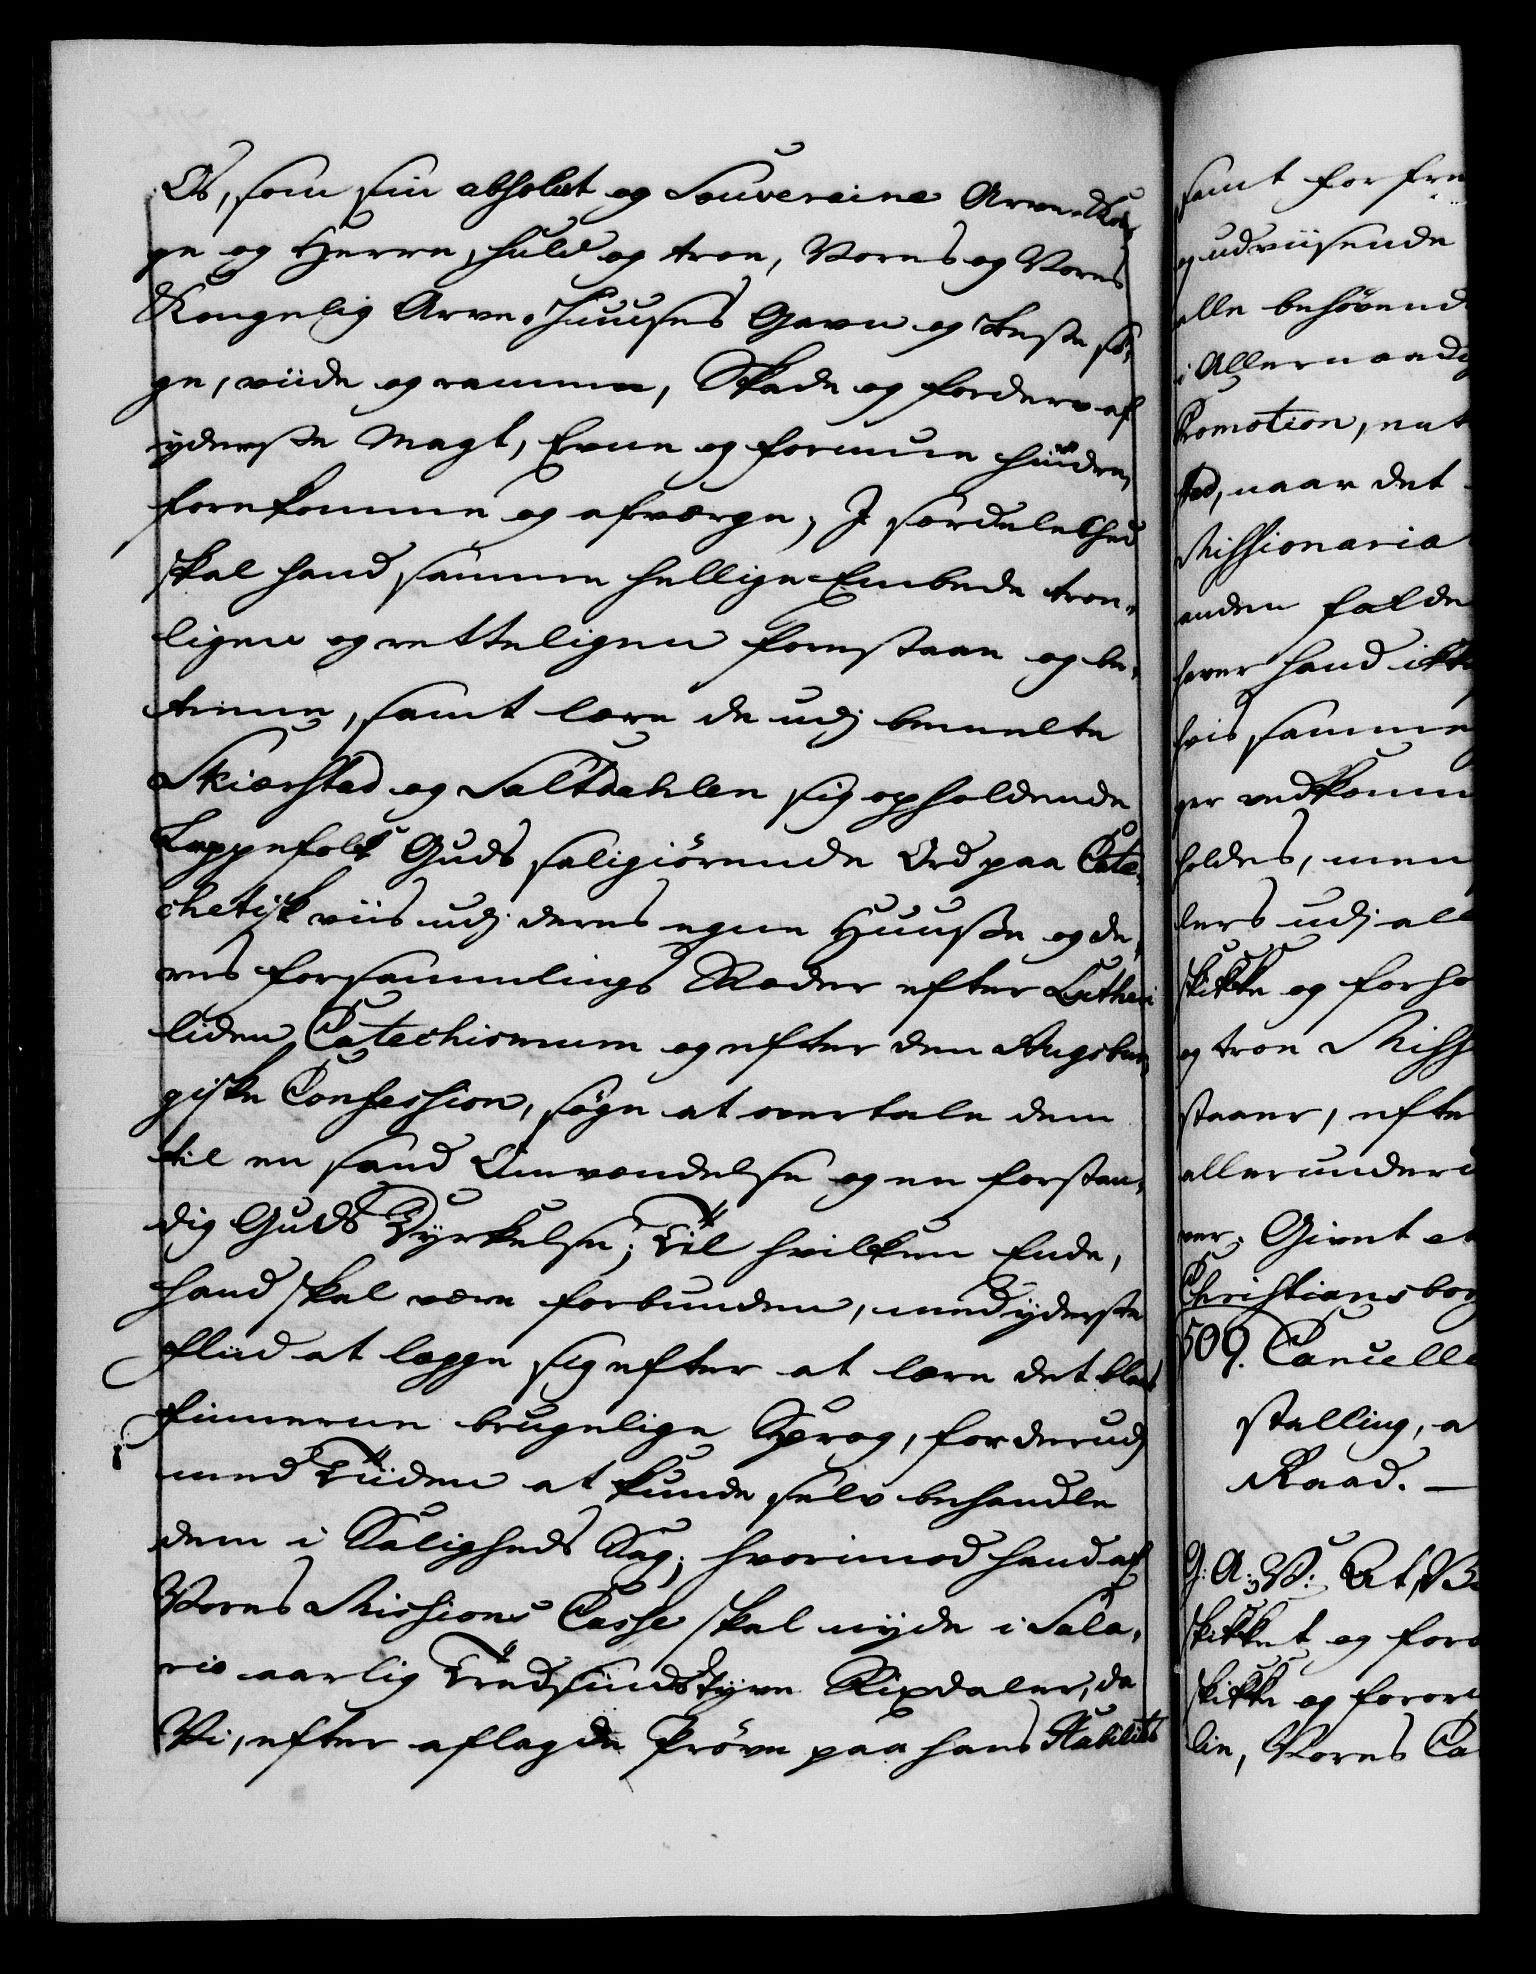 Os, som sin absolut og Souveraine Arve-Kon-
ge og Herre, huld og troe, Vores og Vores
Kongelig Arve-Huuses Gavn og beste sø-
ge, viide og ramme, Skade og forderv af
yderste Magt, Evne og formue hindre,
forekomme og afværge, J særdeleshed
skal hand samme hellige Embede troe-
ligen og retteligen forestaae og be-
tiene, samt lære de udj bemelte
Skierstad og Saltdahlen sig opholdende
Lappefolk Guds saligiørende Ord paa Cate-
chetisk viis udj deres egne Huuse og de-
res forsamlings Stæder efter Lutheri
liden Catechismum og efter den Augsbur-
giske Confession, søge at overtale dem
til en sand Omvendelse og en forstan-
dig Guds Dyrkelse; Til hvilken Ende,
hand skal være forbunden, med yderste
fliid at lægge sig efter at lære det blant
finnerne brugelige Sprog, for derudj
med Tiiden at kunde selv behandle
dem i Saligheds Sag; hvorimod hand af
Vores Missions Casse skal nyde i Sala-
rio aarlig Tredsindstyve Rixdaler, da
Vi, efter aflagde Prøve paa hans Habilitet
samt for
og udviisende
alle behøvend
i Allernaadig
Promotion, ent
sted, naar det
Missionaria
anden falde
haver hand ikke
hvis samme
ger vedkomm
holdes, men
lers udj all
skikke og forho
og troe Miss
staaer, efte
allerunder
ver. Givet et
Christiansborg
509. Cancelle
stalling, a
Raad. —
G: A: V: At, Vi
skikket og foro
skikke og foror
lie, Vores Ca